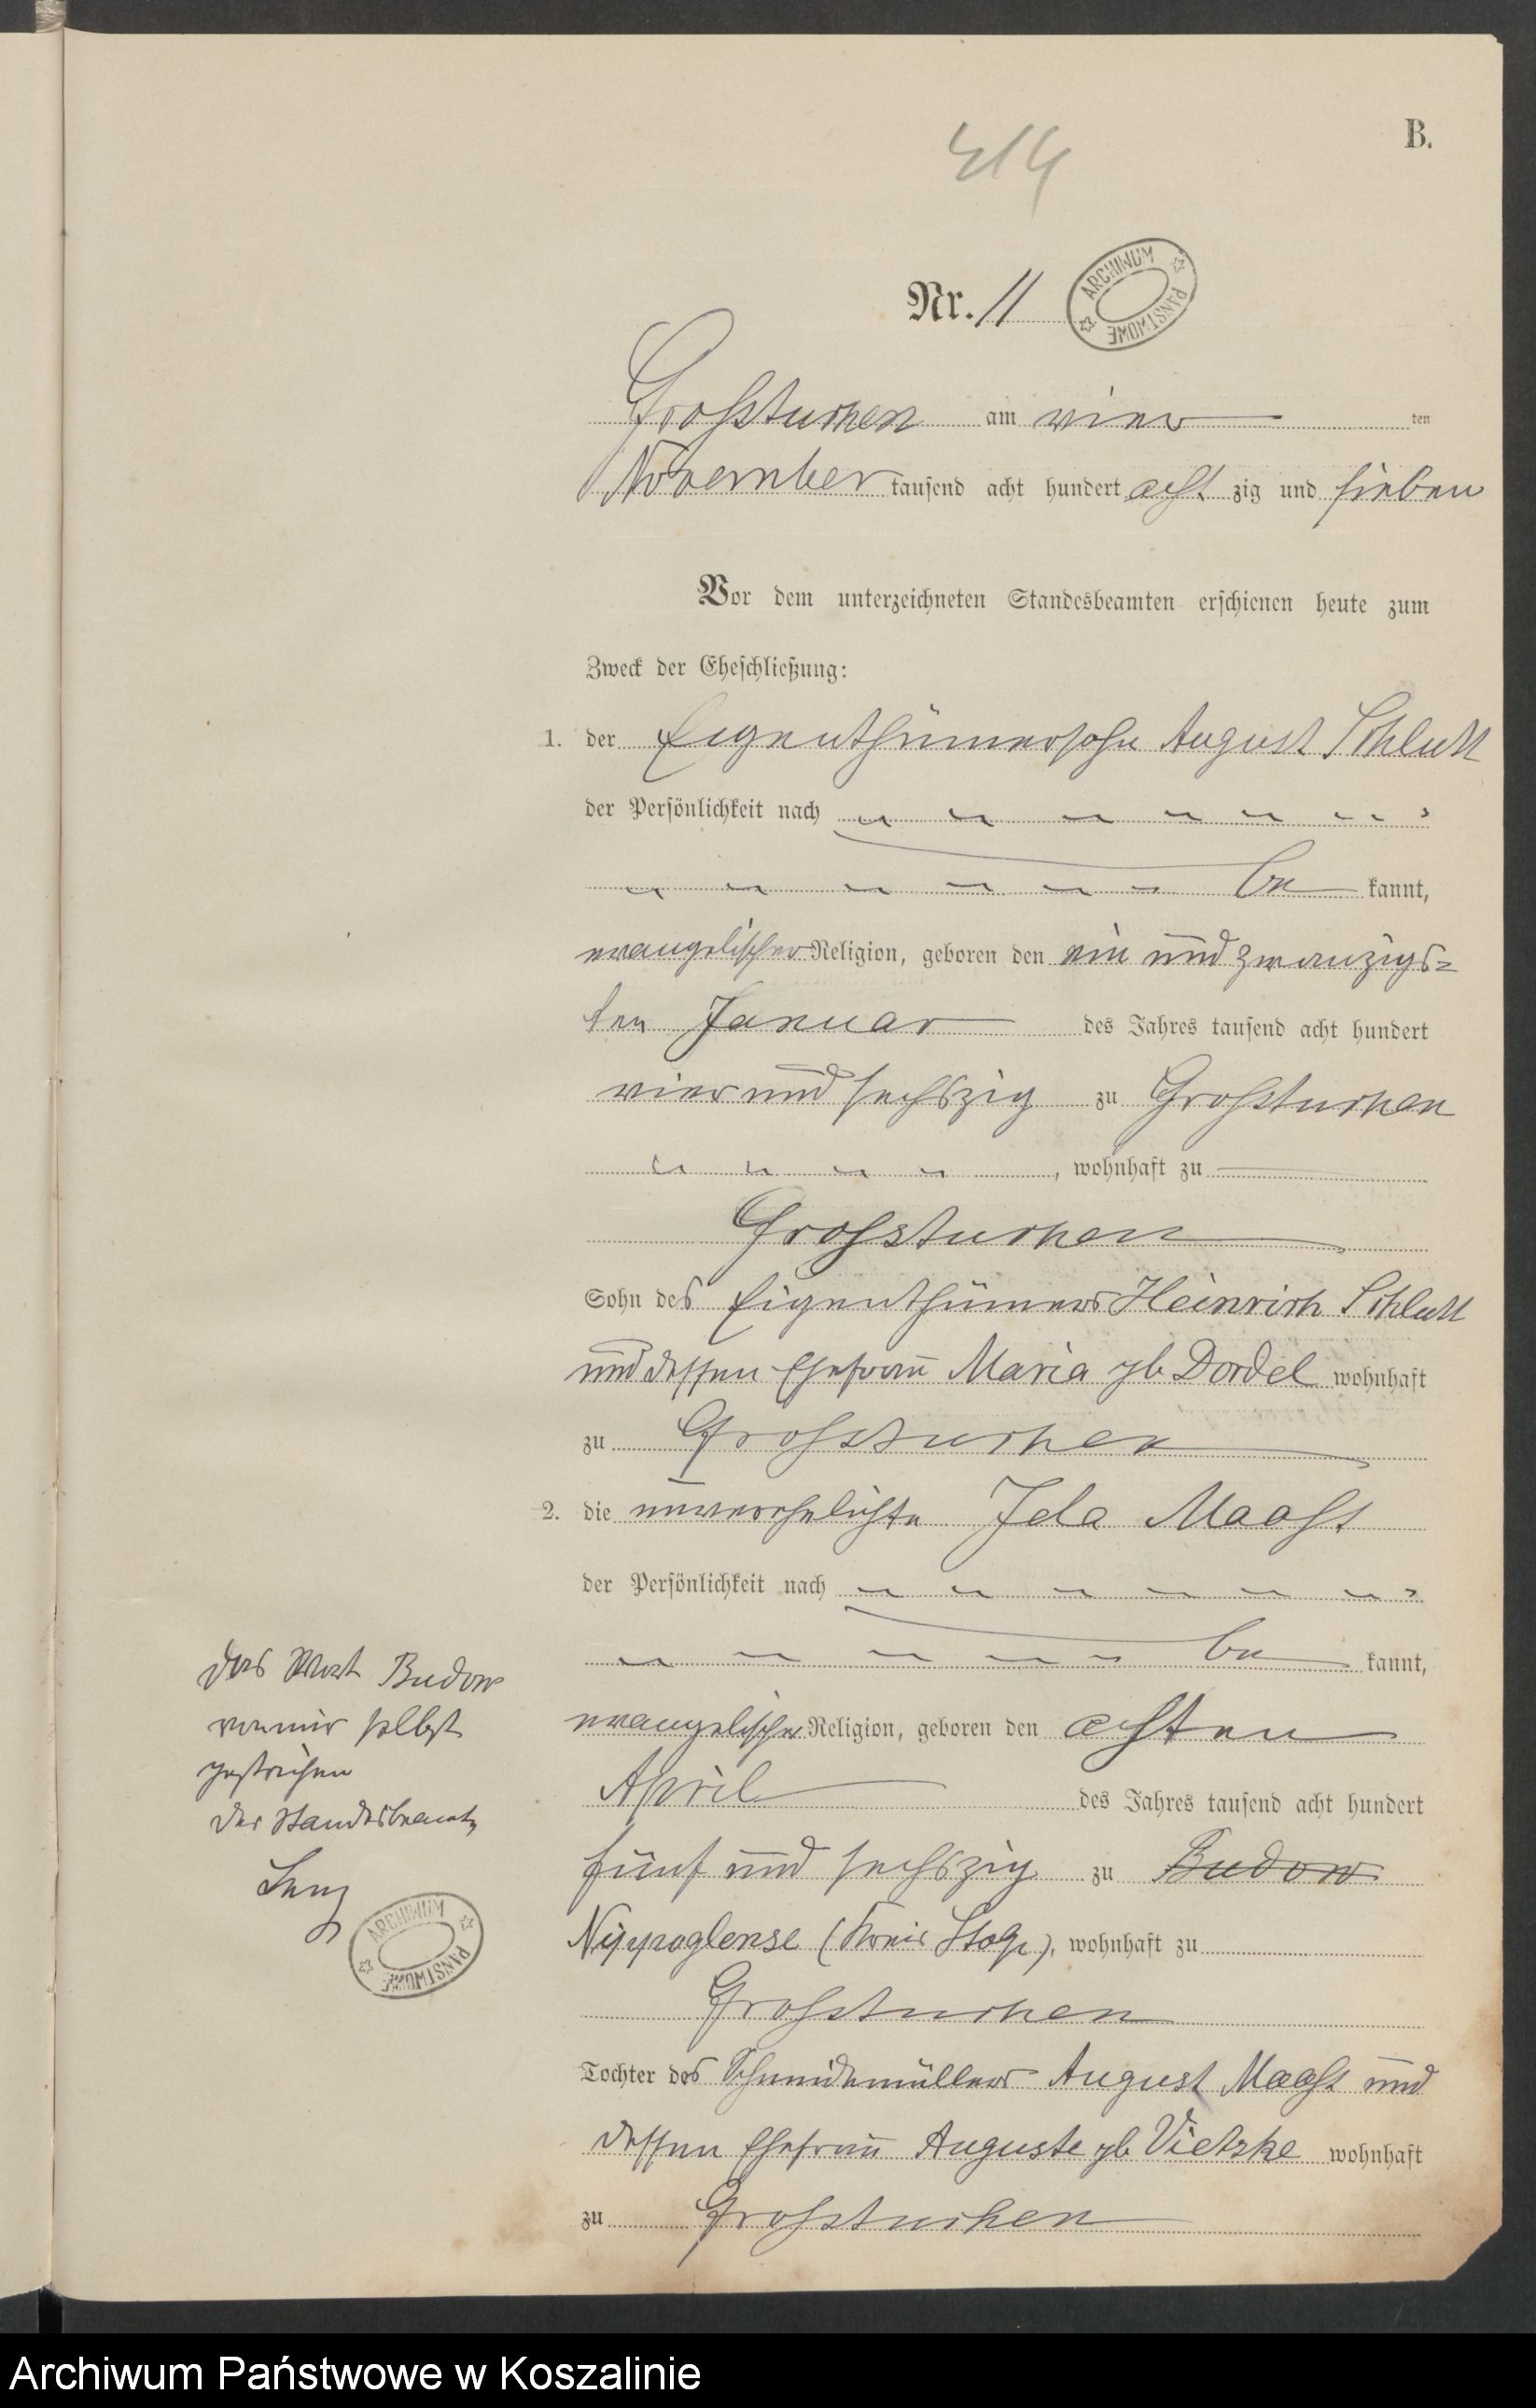 B.
414
Nr. 11
ARCHIWUM PAŃSTWOWE
Großtuchen am vier ten
November tausend acht hundert acht zig und sieben
Vor dem unterzeichneten Standesbeamten erschienen heute zum
Zweck der Eheschließung:
1. der Eigenthümersohn August Schlutt
der Persönlichkeit nach
be kannt,
evangelischer Religion, geboren den ein und zwanzigs=
ten Januar des Jahres tausend acht hundert
vier und sechszig zu Großtuchen
, wohnhaft zu
Großtuchen
Sohn des Eigenthümers Heinrich Schlutt
und dessen Ehefrau Maria gb Dordel wohnhaft
zu Großtuchen
2. die unverehelichte Ida Maaß
der Persönlichkeit nach
be kannt,
evangelischer Religion, geboren den achten
April des Jahres tausend acht hundert
fünf und sechszig zu Budow
Nippoglense (Kreis Stolp), wohnhaft zu
Großtuchen
Tochter des Schneidemüllers August Maaß und
dessen Ehefrau Auguste gb Vietzke wohnhaft
zu Großtuchen
Das Wort Budow
von mir selbst
gestrichen
Der Standesbeamte
Lenz
ARCHIWUM PAŃSTWOWE
Archiwum Państwowe w Koszalinie